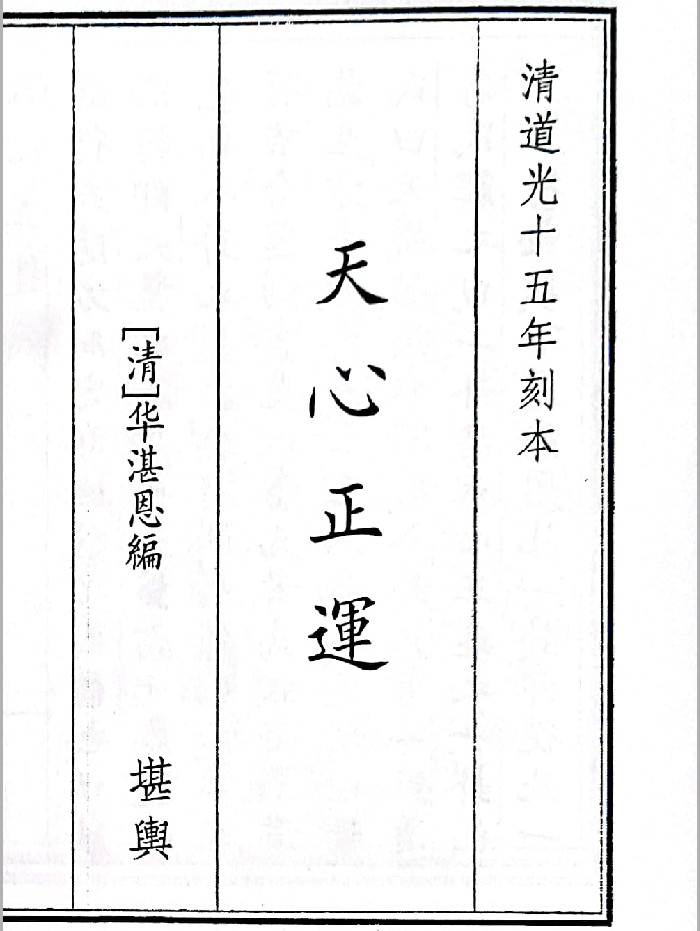 清道光十五年刻本
天心正運
[清]华湛恩編
堪輿